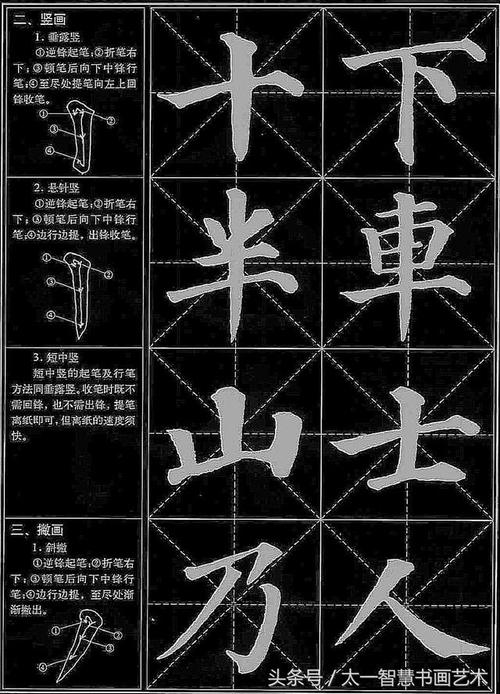 二、竖画
1. 垂露竖
①逆锋起笔;②折笔右
下;③顿笔后向下中锋行
笔;④至尽处提笔向左上回
锋收笔。
① ②
③
④
十 下
2. 悬针竖
①逆锋起笔;②折笔右
下;③顿笔后向下中锋行
笔;④边行边提,出锋收笔。
① ②
③
④
半 車
3. 短中竖
短中竖的起笔及行笔
方法同垂露竖。收笔时既不
需回锋,也不需出锋,提笔
离纸即可,但离纸的速度须
快。
山 士
三、撇画
1. 斜撇
①逆锋起笔;②折笔右
下;③顿笔后向下中锋行
笔;④边行边提,至尽处渐
渐撇出。
① ②
③
④
乃 人
头条号/太一智慧书画艺术